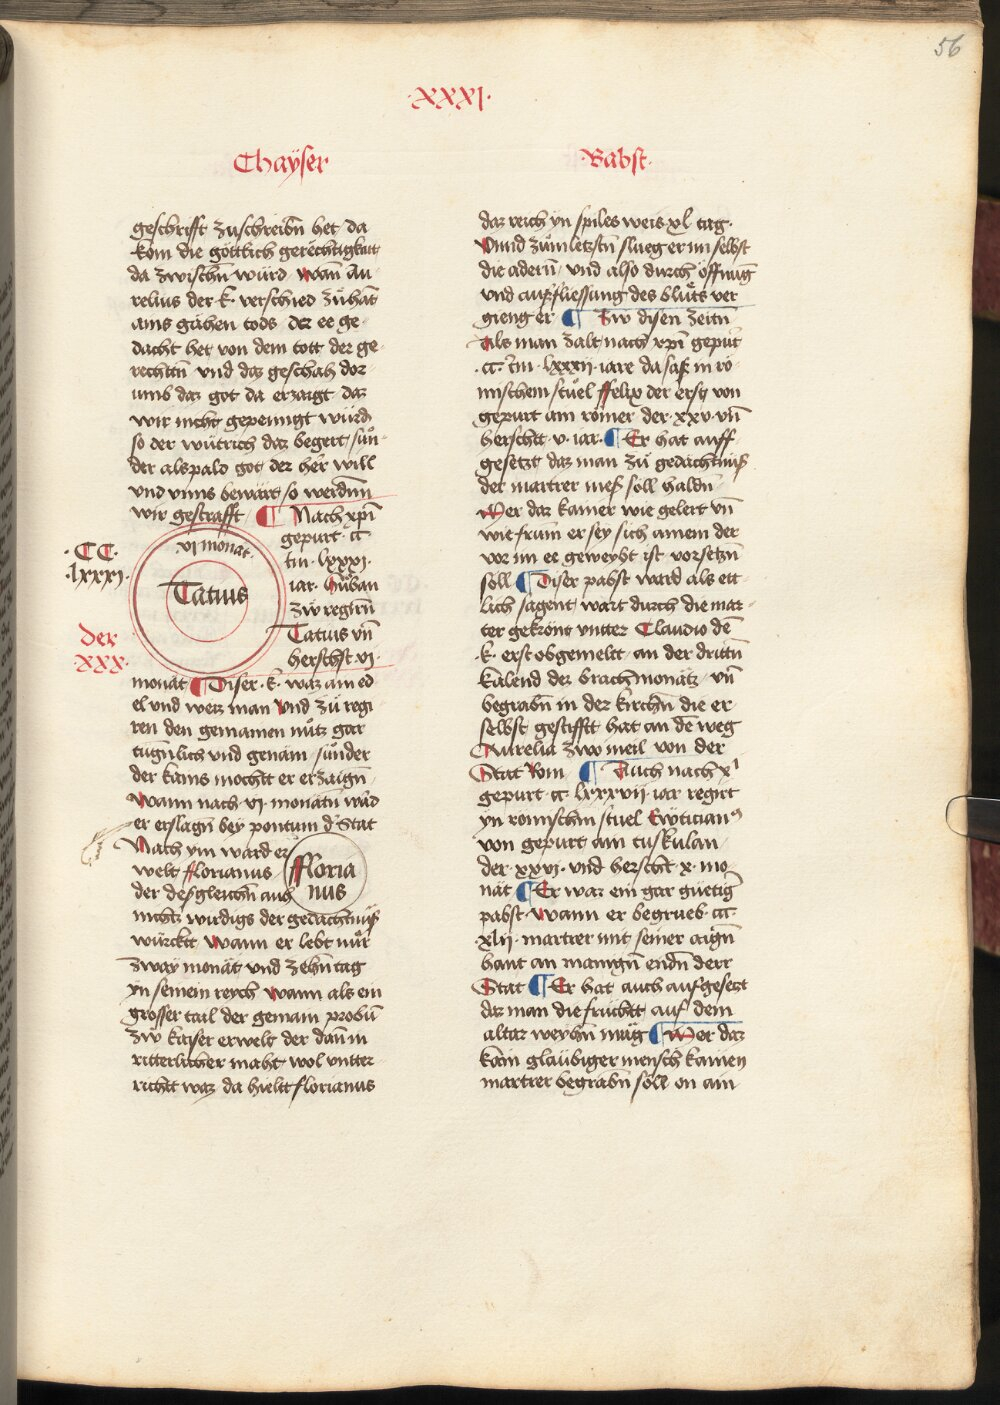 56
·XXXI·
Chaÿser
geschrifft zuschreibn̄ het da
kom die göttlich gerechtigkait
da zwischn̄ würd · wan̄ Au-
relius der k· verschied zůhāt
ains gähen tods · der ee ge-
dacht het von dem tott der ge-
rechttn̄ vnd daz geschah dor-
umb daz got da erzaigt daz
wir nicht gepeinigt würd
so der wütrich daz begert sun̄-
der alspald got der her will
vnd vnns bewart so werdnn
wir gestrafft ¶ Nach xp̄i
gepurt · cc
tm · lxxxi·
iar· hůban
zw regirn̄
Tatius vn̄
herschst vi·
·CC·
·lxxxi·
der
·xxx·
·vi monat·
Tatius
monat ¶ Diser ·k· waz ain ed-
el vnd weiz man Vnd zů regi-
ren den gemainen nutz gar
tugn̄lich vnd genäm · sunder
der kains mochtt er erzaign̄
Wann nach · vi · monatn̄ ward
er erslagn̄ bey pontum d' Stat
Nach ym ward er
welt fflorianus
der desgleichn̄ auch
ffloria
nus
nichtz wirdigs der gedächtnuß
würcktt · Wann er lebt nur
zway monat vnd zehn̄ tag
yn seinem reych Wann als ein
grosser tail der gemain probū
zw kaiser erwelt der dan̄ in
ritterlicher maht wol vntter-
richtt waz da hieltt florianus
·Babst·
daz reich yn spiles weis · xl tag·
Vnnd zum letzstn̄ slueg er im selbst
die adern̄ · vnd also durch öffnūg
vnd außfliessung des blůts ver
gieng er ¶ Zw disen zeitn̄
Als man zalt nach xp̄i gepur̄t
·cc· tm · lxxxii · iare da saß in rö
mischem stuel ffelix der erst von
gepurt ain römer der · xxv · vn̄
herschtt · v · iar · ¶ Er hat auff
gesetzt daz man zů gedächtnuß
der martrer meß söll haldn̄
Wer daz kainer wie gelert vn̄
wie frum er sey sich ainem der
vor im ee geweyht ist vorsetzn̄
söll ¶ Diser pabst ward als ett-
lich sagent wart durch die mar-
ter gekrönt vntter Claudio dē
·k· erst obgemeltt an der drittn̄
kalend des brachmonatz · vn̄
begrabn̄ in der kirchn̄ die er
selbst gestifftt hat an dē weg
Aurelia zwo meil von der
Stat Rom ¶ Auch nach x'
gepurt · cc · lxxxvii · iar regirt
yn römischm̄ stuel Ewtitian⁹
von gepurt ain tuskulan
der xxvi · vnd herschtt · x · mo-
nāt ¶ Er waz ein gar guetiḡ
pabst · Wann er begrueb · ccc ·
·xlii · martrer mit seiner aign̄
hant an manign̄ endn̄ derr
Stat ¶ Er hat auch aufgesetzt
daz man die früchtt auf dem
altar weyhn̄ müg ¶ Wer daz
kain glaubiger mensch kainen
martrer begrabn̄ söll on ain